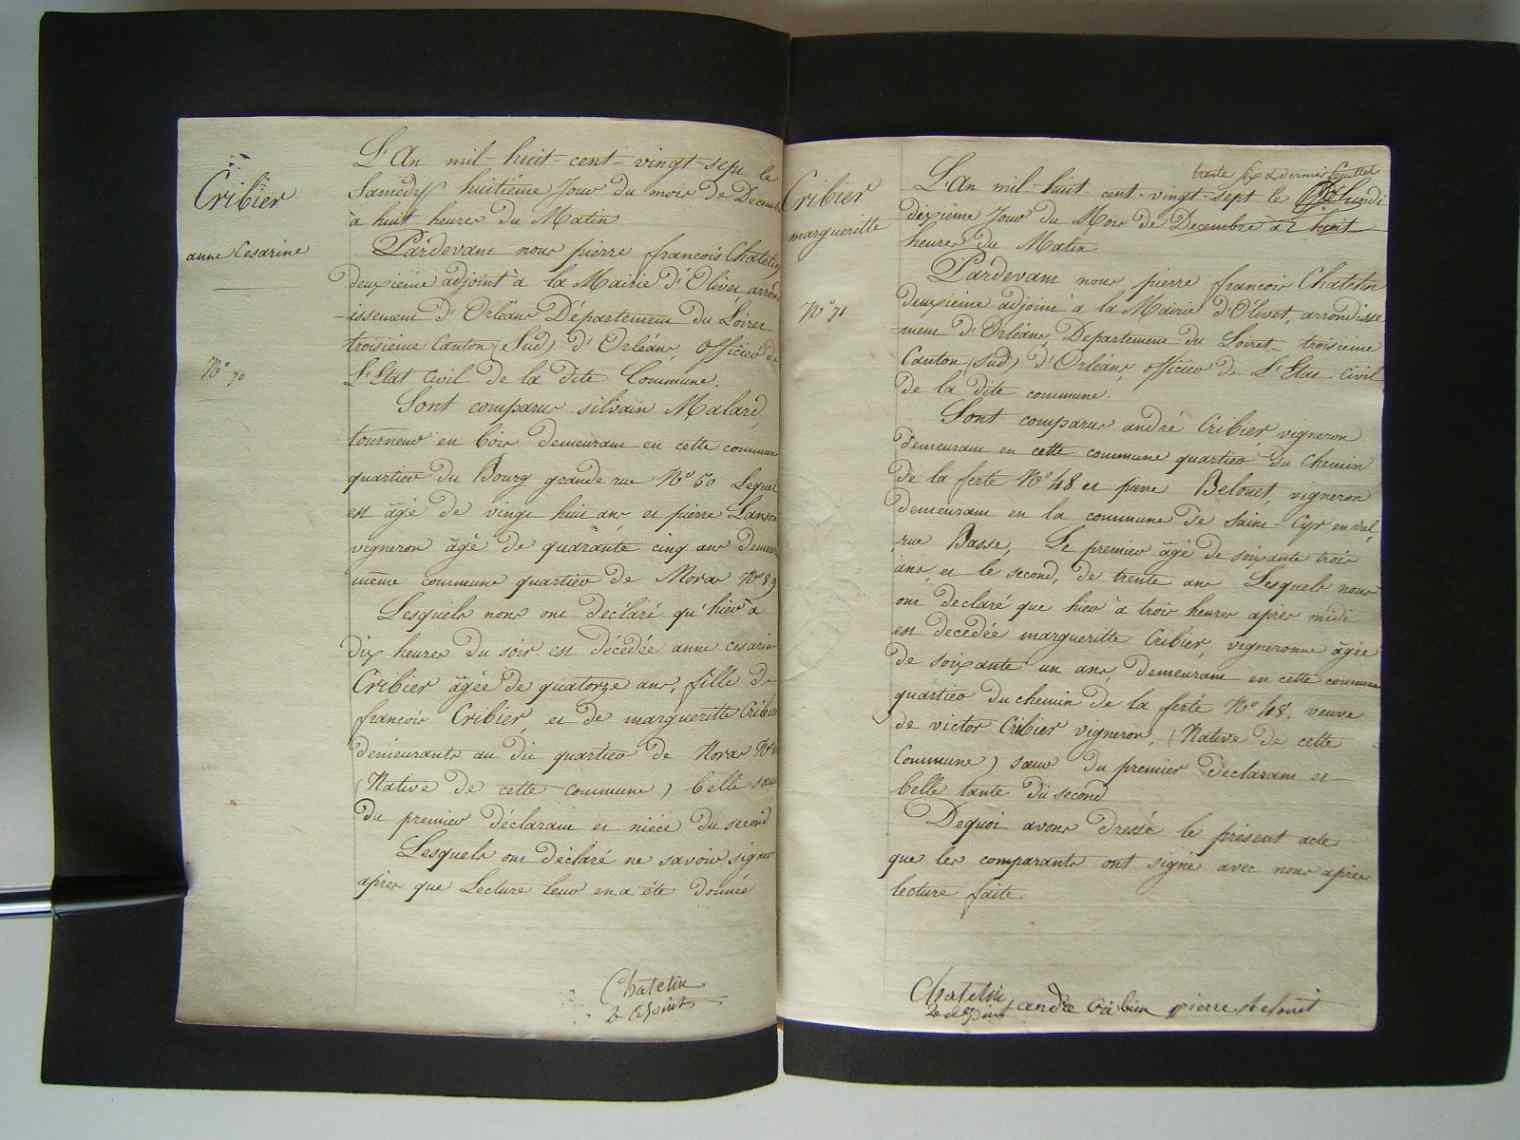 Cribier
anne Cesarine
N° 70
L'An mil-huit-cent-vingt-sept le
Samedy huitiéme Jour du mois de Decemb
à huit heures du Matin
Pardevant nous pierre francois Chatelin
deuxieme adjoint à la Mairie d'Olivet arron
-issement d'Orléans Département du Loiret
troisieme Canton (Sud) d'Orléans, officier de
L'Etat Civil de la dite Commune.
Sont comparus silvain Malard,
tourneur en bois demeurant en cette commune
quartier du Bourg grande rue N° 50 Lequel
est âgé de vingt huit ans et pierre
vigneron âgé de quarante cinq ans demeu
même commune quartier de N° 89
Lesquels nous ont déclaré qu'hier à
dix heures du soir est décédée anne cesarin
Cribier âgée de quatorze ans, fille de
francois Cribier, et de margueritte Crib
demeurants au dit quartier de
(Native de cette commune) belle sœur
du premier déclarant et niéce du second
Lesquels ont déclaré ne savoir signer
après que Lecture leur en a été donnée
Chatelin
2e adjoint
Cribier
margueritte
N° 71
trente six & dernier feuillet
L'An mil-huit cent-vingt-sept le Lundi
dixieme Jour du Mois de Decembre à huit
heures du Matin
Pardevant nous pierre francois Chatelin
deuxieme adjoint à la Mairie d'Olivet, arrondisse
-ment d'Orléans, Departement du Loiret troisieme
Canton (Sud) d'Orléans officier de L'Etat civil
de la dite commune.
Sont comparus andré Cribier, vigneron
demeurant en cette commune quartier du Chemin
de la ferté N° 48 et pierre Belouet, vigneron
demeurant en la commune de Saint-Cyr en val,
rue Basse, Le premier âgé de soixante trois
ans, et le second, de trente ans Lesquels nous
ont declaré que hier à trois heures après midi
est decedée margueritte Cribier, vigneronne âgée
de soixante un ans, demeurant en cette commune
quartier du chemin de la ferté N° 48. veuve
de victor Cribier vigneron, (Native de cette
Commune) sœur du premier déclarant et
belle tante du second
Dequoi avons dressé le présent acte
que les comparants ont signé avec nous après
lecture faite.
Chatelin
2e adjoint andré Cribier pierre Belouet